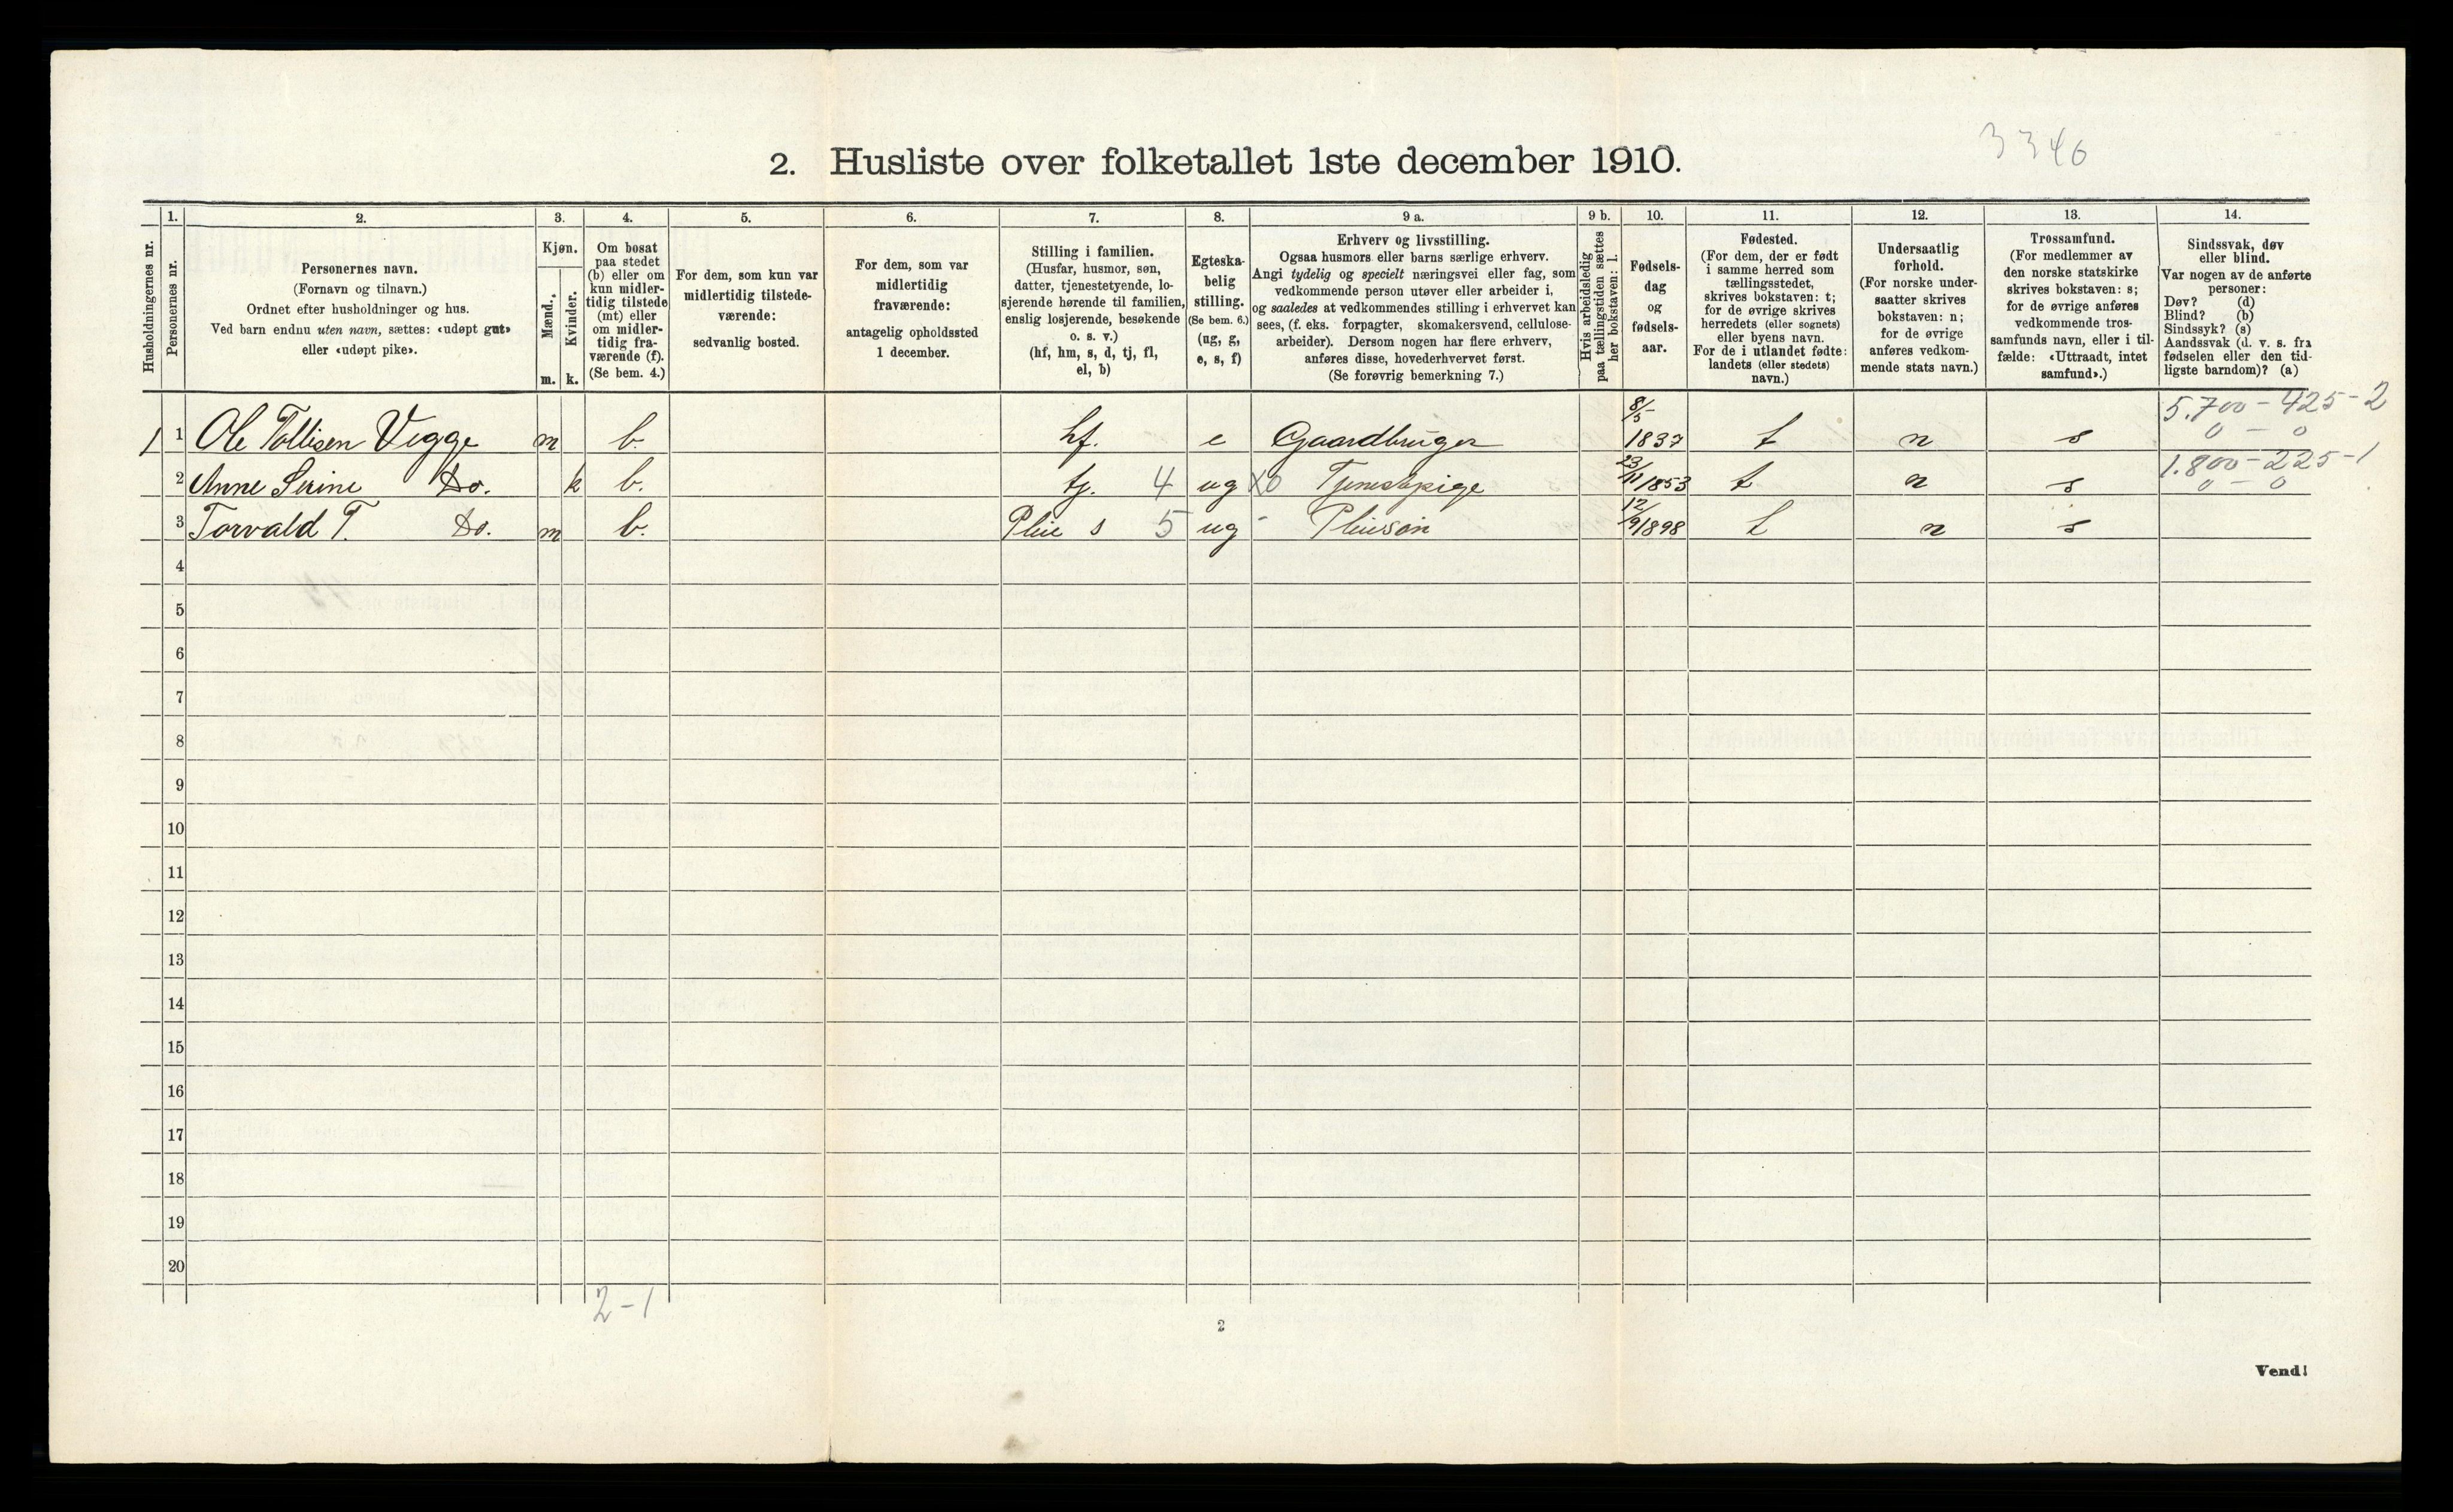 3340
2. Husliste over folketallet 1ste december 1910.
Husholdningernes nr.
1.
Personernes nr.
2.
Personernes navn.
(Fornavn og tilnavn.)
Ordnet efter husholdninger og hus.
Ved barn endnu uten navn, sættes: «udøpt gut»
eller «udøpt pike».
3.
Kjøn.
Mænd.
Kvinder.
m. k.
4.
Om bosat
paa stedet
(b) eller om
kun midler-
tidig tilstede
(mt) eller
om midler-
tidig fra-
værende (f).
(Se bem. 4.)
5.
For dem, som kun var
midlertidig tilstede-
værende:
sedvanlig bosted.
6.
For dem, som var
midlertidig
fraværende:
antagelig opholdssted
1 december.
7.
Stilling i familien.
(Husfar, husmor, søn,
datter, tjenestetyende, lo-
sjerende hørende til familien,
enslig losjerende, besøkende
o. s. v.)
(hf, hm, s, d, tj, fl,
el, b)
8.
Egteska-
belig
stilling.
(Se bem. 6.)
(ug, g,
e, s, f)
9 a.
Erhverv og livsstilling.
Ogsaa husmors eller barns særlige erhverv.
Angi tydelig og specielt næringsvei eller fag, som
vedkommende person utøver eller arbeider i,
og saaledes at vedkommendes stilling i erhvervet kan
sees, (f. eks. forpagter, skomakersvend, cellulose-
arbeider). Dersom nogen har flere erhverv,
anføres disse, hovederhvervet først.
(Se forøvrig bemerkning 7.)
9 b.
Hvis arbeidsledig
paa tællingstiden sættes
her bokstaven: l.
10.
Fødsels-
dag
og
fødsels-
aar.
11.
Fødested.
(For dem, der er født
i samme herred som
tællingsstedet,
skrives bokstaven: t;
for de øvrige skrives
herredets (eller sognets)
eller byens navn.
For de i utlandet fødte:
landets (eller stedets)
navn.)
12.
Undersaatlig
forhold.
(For norske under-
saatter skrives
bokstaven: n;
for de øvrige
anføres vedkom-
mende stats navn.)
13.
Trossamfund.
(For medlemmer av
den norske statskirke
skrives bokstaven: s;
for de øvrige anføres
vedkommende tros-
samfunds navn, eller i til-
fælde: «Uttraadt, intet
samfund».)
14.
Sindssvak, døv
eller blind.
Var nogen av de anførte
personer:
Døv? (d)
Blind? (b)
Sindssyk? (s)
Aandssvak (d. v. s. fra
fødselen eller den tid-
ligste barndom)? (a)
1 1 Ole Tollisen Vegge m b. hf. e Gaardbruger 8/5 1837 t n s 5.700-425-2
0 - 0
2 Anne Serine Do. k b. tj. 4 ug x0 Tjenestpige 23/11 1853 t n s 1.800-225-1
0 - 0
3 Torvald T. Do. m b. Pleie s 5 ug - Pleiesøn 12/9 1898 t n s
4
5
6
7
8
9
10
11
12
13
14
15
16
17
18
19
20
2-1
2
Vend!